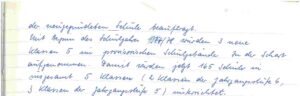 der neugegründeten Schule beauftragt.
Mit Beginn des Schuljahres 1977/78 wurden 3 neue
Klassen 5 im provisorischen Schulgebäude In der Schart
aufgenommen. Damit wurden jetzt 165 Schüler in
insgesamt 5 Klassen (2 Klassen der Jahrgangsstufe 6,
3 Klassen der Jahrgangsstufe 5) unterrichtet.